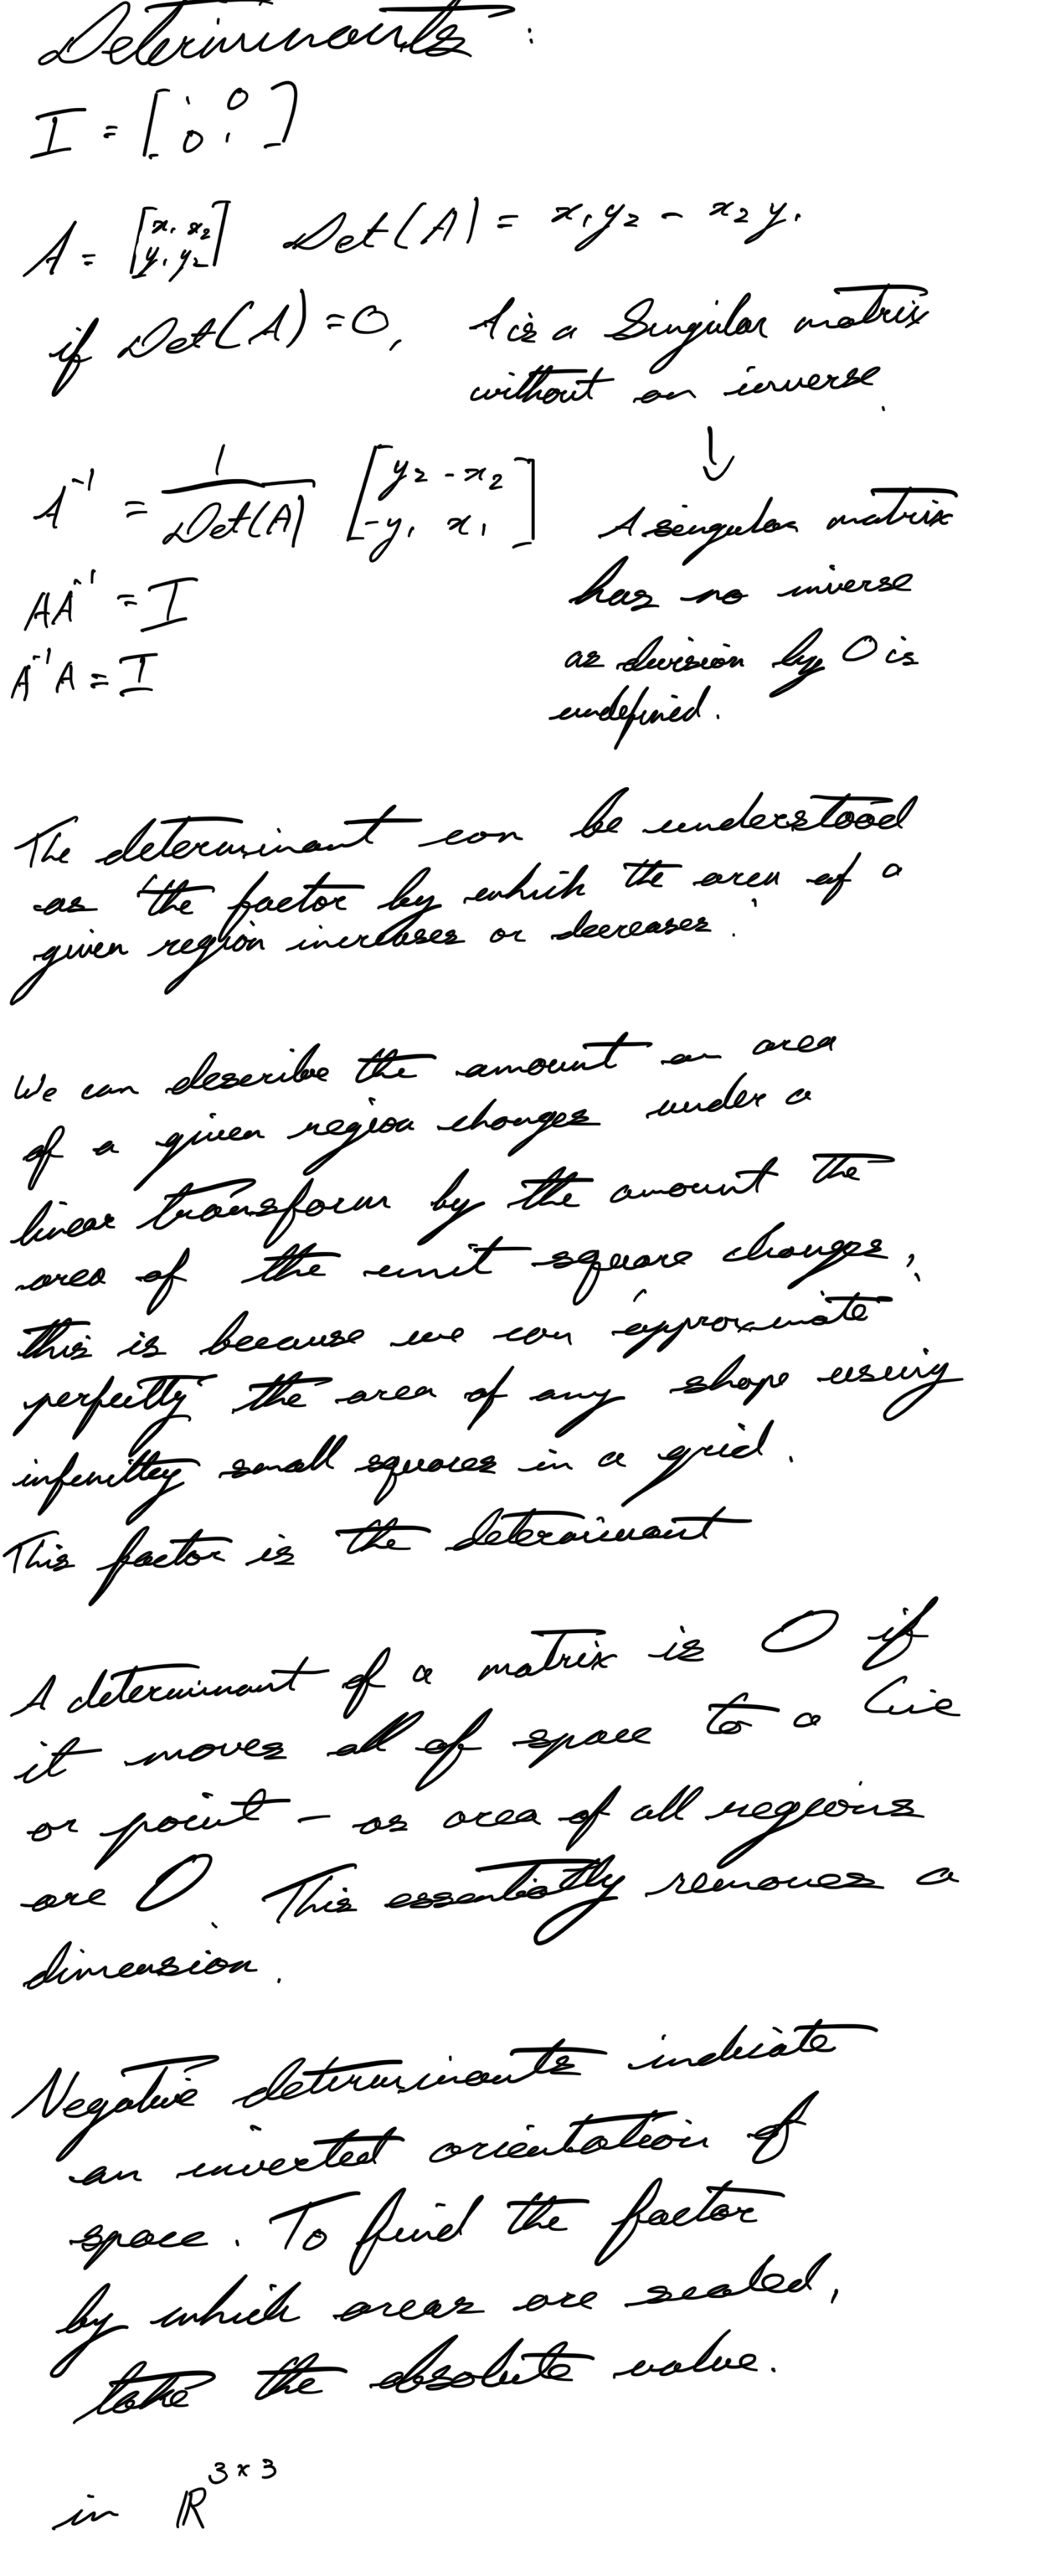 Determinants :
I = [ 1 0
0 1 ]
A = [ x₁ x₂
y₁ y₂ ] Det(A) = x₁y₂ - x₂y₁
if Det(A) = 0, A is a Singular matrix
without an inverse.
↓
A⁻¹ = 1/Det(A) [ y₂ -x₂
-y₁ x₁ ]
A singular matrix
has no inverse
as division by 0 is
undefined.
AA⁻¹ = I
A⁻¹A = I
The determinant can be understood
as "the factor by which the area of a
given region increases or decreases".
We can describe the amount an area
of a given region changes under a
linear transform by the amount the
area of the unit square changes,
this is because we can "approximate
perfectly" the area of any shape using
infinitley small squares in a grid.
This factor is the determinant
A determinant of a matrix is 0 if
it moves all of space to a line
or point - as area of all regions
are 0. This essentially removes a
dimension.
Negative determinants indicate
an inverted orientation of
space. To find the factor
by which areas are scaled,
take the absolute value.
in ℝ³ˣ³